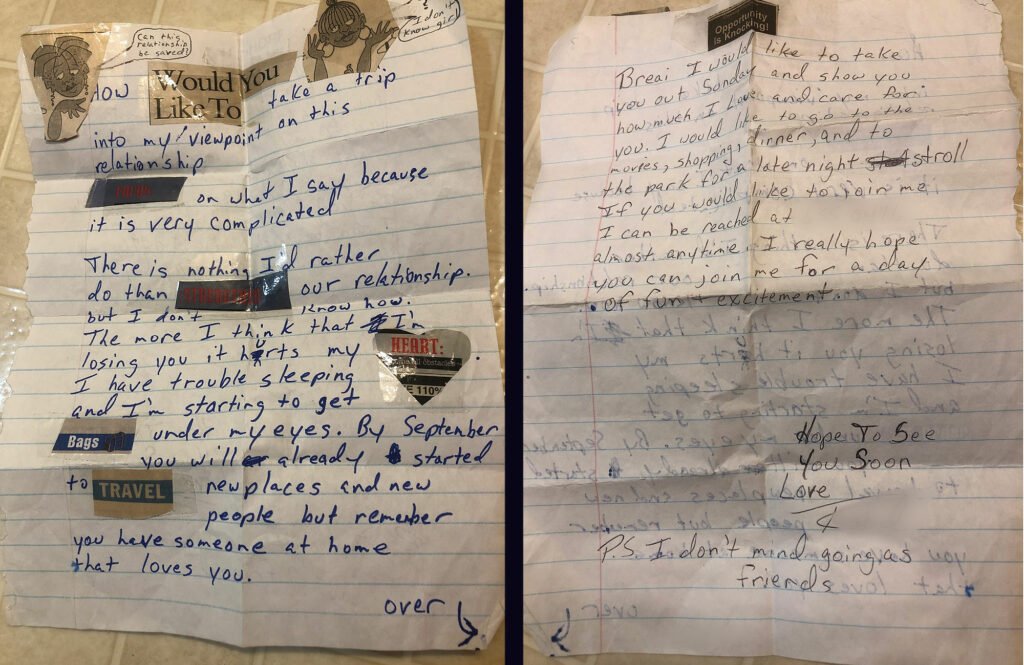 Can this
relationship
be saved?
I don't
know girl
How Would You
Like To take a trip
into my viewpoint on this
relationship
on what I say because
it is very complicated
There is nothing I'd rather
do than our relationship.
but I don't know how.
The more I think that I'm
losing you it hurts my HEART:
110%
I have trouble sleeping
and I'm starting to get
Bags under my eyes. By September
you will already started
to TRAVEL new places and new
people but remember
you have someone at home
that loves you.
over
Opportunity
Is Knocking!
Breai I would like to take
you out Sunday and show you
how much I love and care for
you. I would like to go to the
movies, shopping, dinner, and to
the park for a late night stroll
If you would like to join me
I can be reached at
almost anytime. I really hope
you can join me for a day
of fun + excitement.
Hope To See
You Soon
Love
&
P.S. I don't mind going as
friends